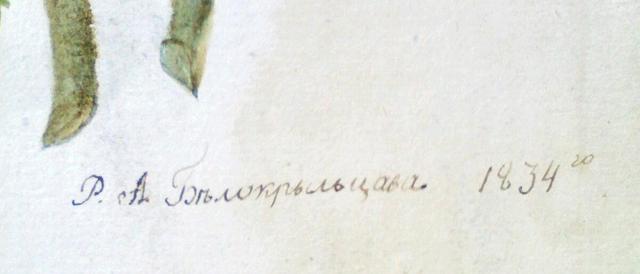 Р. А Бѣлокрыльцава. 1834го